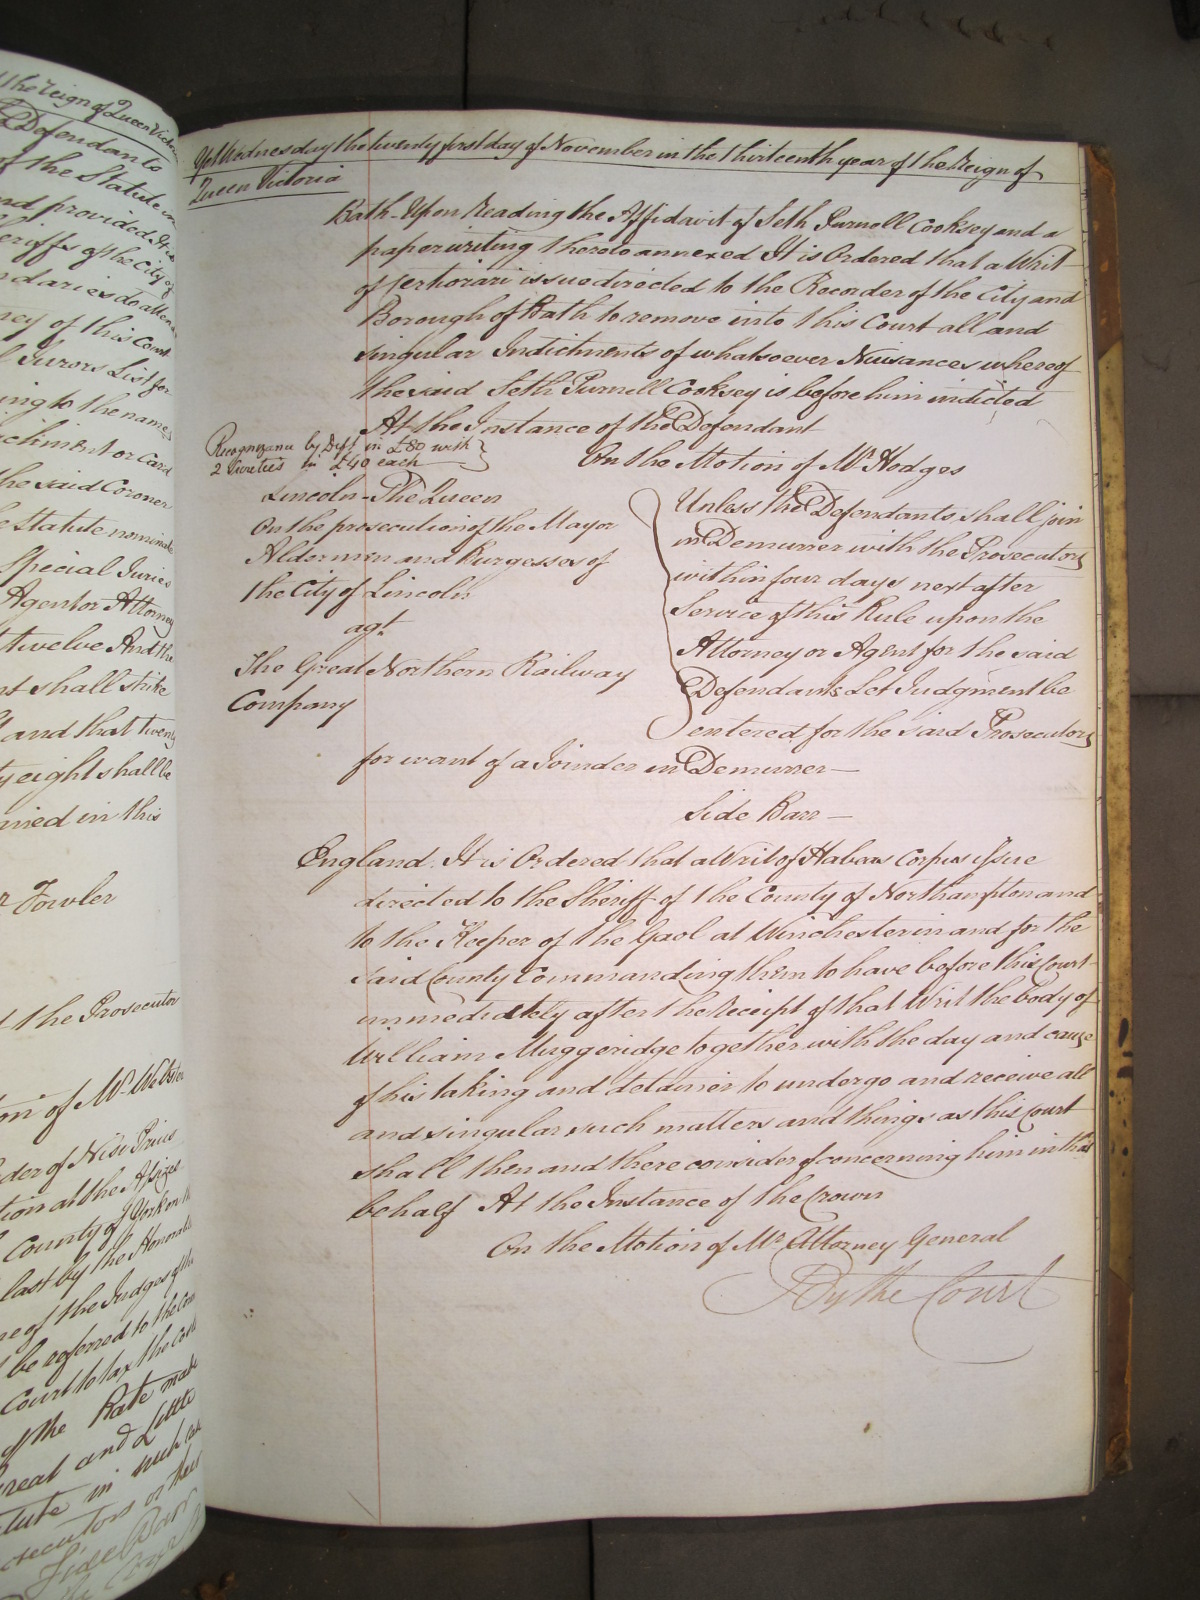 the Reign of Queen Victoria
Defendants
of the Statute in
and provided It is
Sheriffs of the City of
this Court
Jurors List for
ing to the names
Parchment or Card
the said Coroner
Statute nominate
Special Juries
Agent or Attorney
twelve And the
shall strike
and that twenty
eight shall be
in this
Fowler
the Prosecutor
on of Mr. Webster
Order of Nisi Prius
at the Assizes
County of York on the
last by the Honorable
one of the Judges of the
be referred to the
Court to tax the Costs
of the Rate made
Great and Little
Statute in such case
Side Barr
By the Court
Yet Wednesday the twenty first day of November in the thirteenth year of the Reign of
Queen Victoria
Bath - Upon Reading the Affidavit of Seth Purnell Cooksey and a
paper writing thereto annexed It is Ordered that a Writ
of Certiorari issue directed to the Recorder of the City and
Borough of Bath to remove into this Court all and
singular Indictments of whatsoever Nuisances whereof
the said Seth Purnell Cooksey is before him indicted
At the Instance of the Defendant
Recognizance by Deft. in £80 with
2 Sureties in £40 each
On the Motion of Mr. Hodges
Lincoln - The Queen
On the prosecution of the Mayor
Aldermen and Burgesses of
the City of Lincoln
agt.
The Great Northern Railway
Company
Unless the Defendants shall join
in Demurrer with the Prosecutors
within four days next after
Service of this Rule upon the
Attorney or Agent for the said
Defendants Let Judgment be
entered for the said Prosecutors
for want of a Joinder in Demurrer —
Side Barr —
England. It is Ordered that a Writ of Habeas Corpus issue
directed to the Sheriff of the County of Northampton and
to the Keeper of the Gaol at Winchester in and for the
said County Commanding them to have before this Court
immediately after the Receipt of that Writ the body of
William Muggeridge together with the day and cause
of his taking and detainer to undergo and receive all
and singular such matters and things as this Court
shall then and there consider of concerning him in that
behalf At the Instance of the Crown
On the Motion of Mr. Attorney General
By the Court